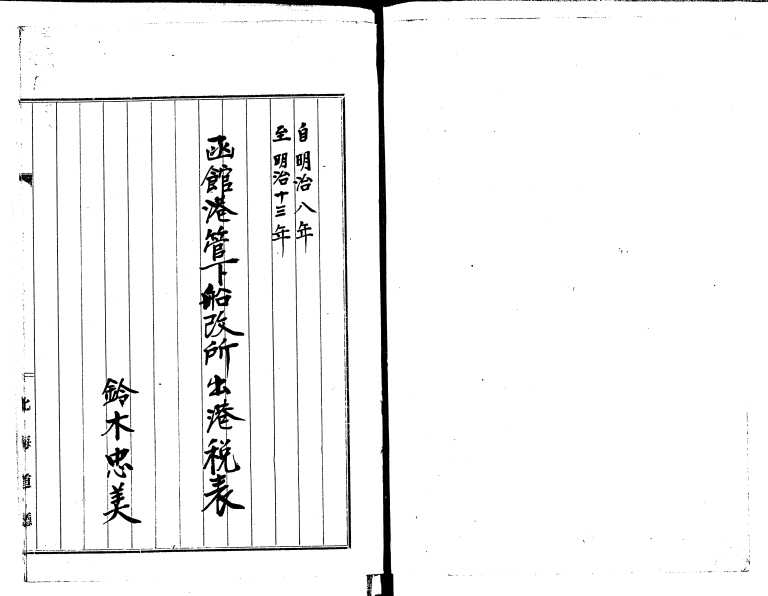 自明治八年
至明治十三年
函館港管下船改所出港税表
鈴木忠美
北海道